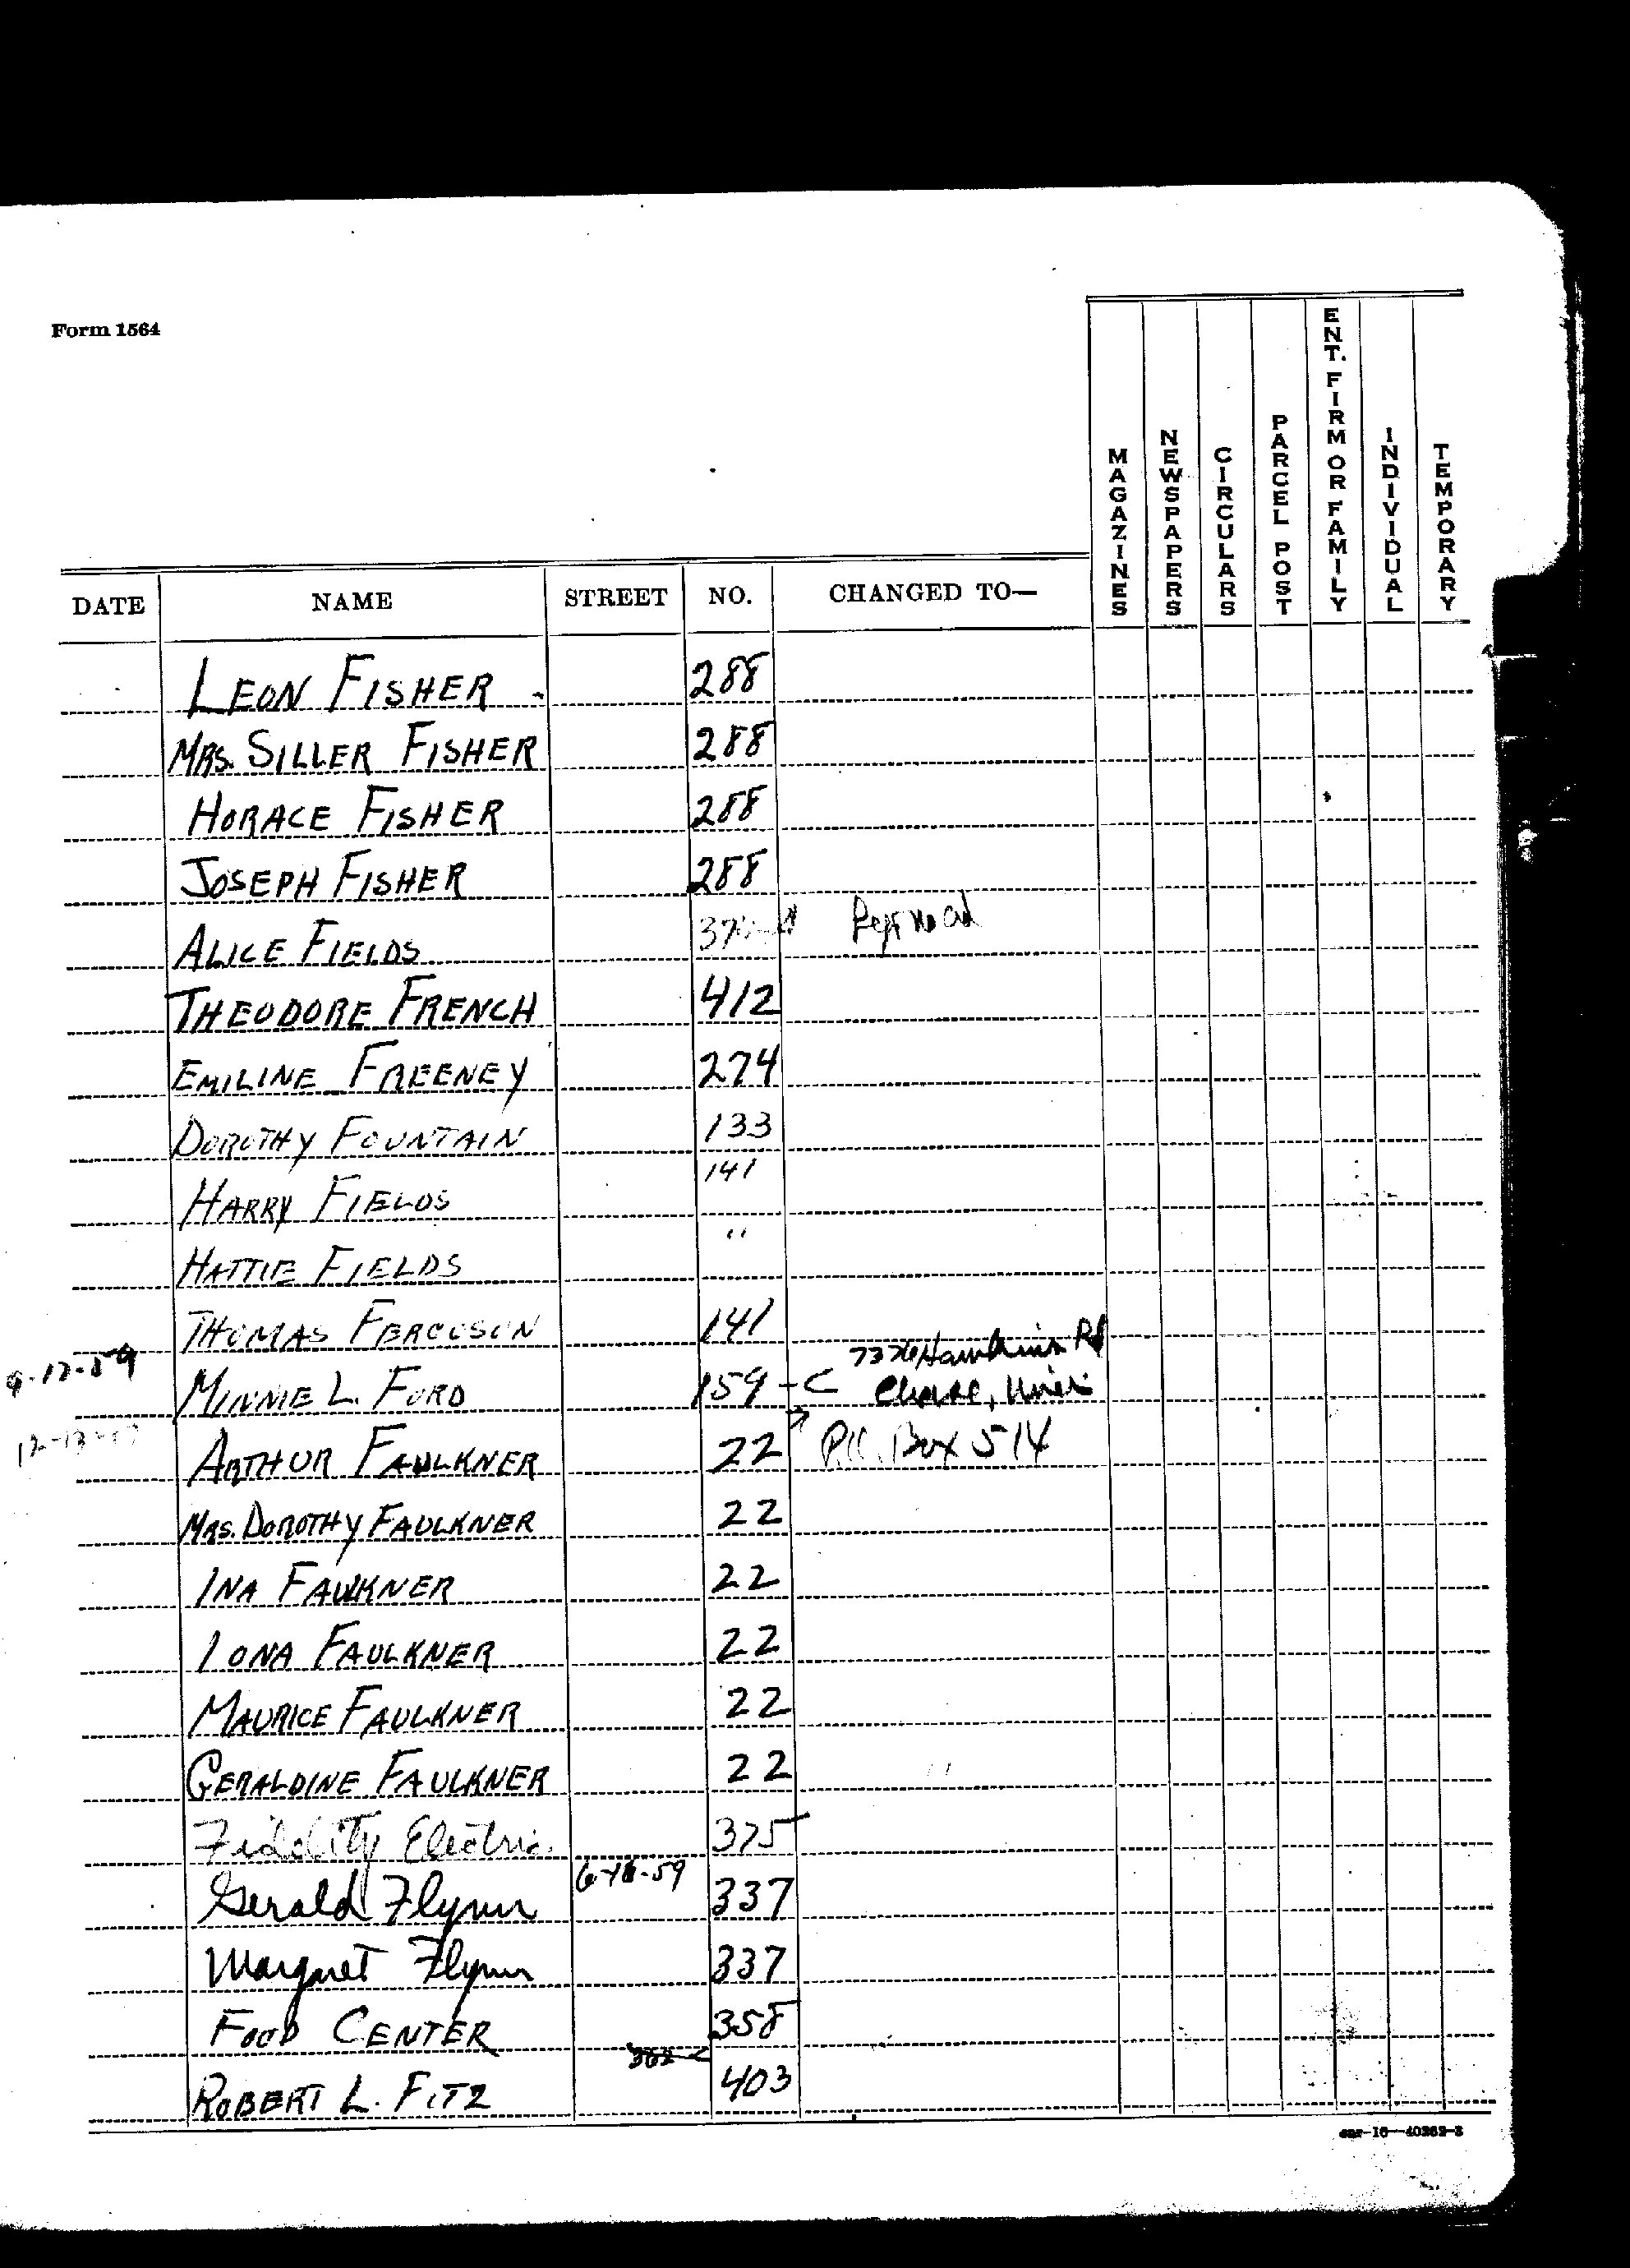 Form 1564
DATE NAME STREET NO. CHANGED TO— MAGAZINES NEWSPAPERS CIRCULARS PARCEL POST ENT. FIRM OR FAMILY INDIVIDUAL TEMPORARY
LEON FISHER 288
MRS. SILLER FISHER 288
HORACE FISHER 288
JOSEPH FISHER 288
ALICE FIELDS
THEODORE FRENCH 412
EMILINE FREENEY 274
DOROTHY FOUNTAIN 133
HARRY FIELDS 141
HATTIE FIELDS "
THOMAS FERGUSON 141
9-17-59 MINNIE L. FORD 159-C Rd
ARTHUR FAULKNER 22 P.O. Box 514
MRS. DOROTHY FAULKNER 22
INA FAULKNER 22
IONA FAULKNER 22
MAURICE FAULKNER 22
GERALDINE FAULKNER 22
Fidelity Electric. 375
Gerald Flynn 337
Margaret Flynn 337
FOOD CENTER 358
ROBERT L. FITZ 403